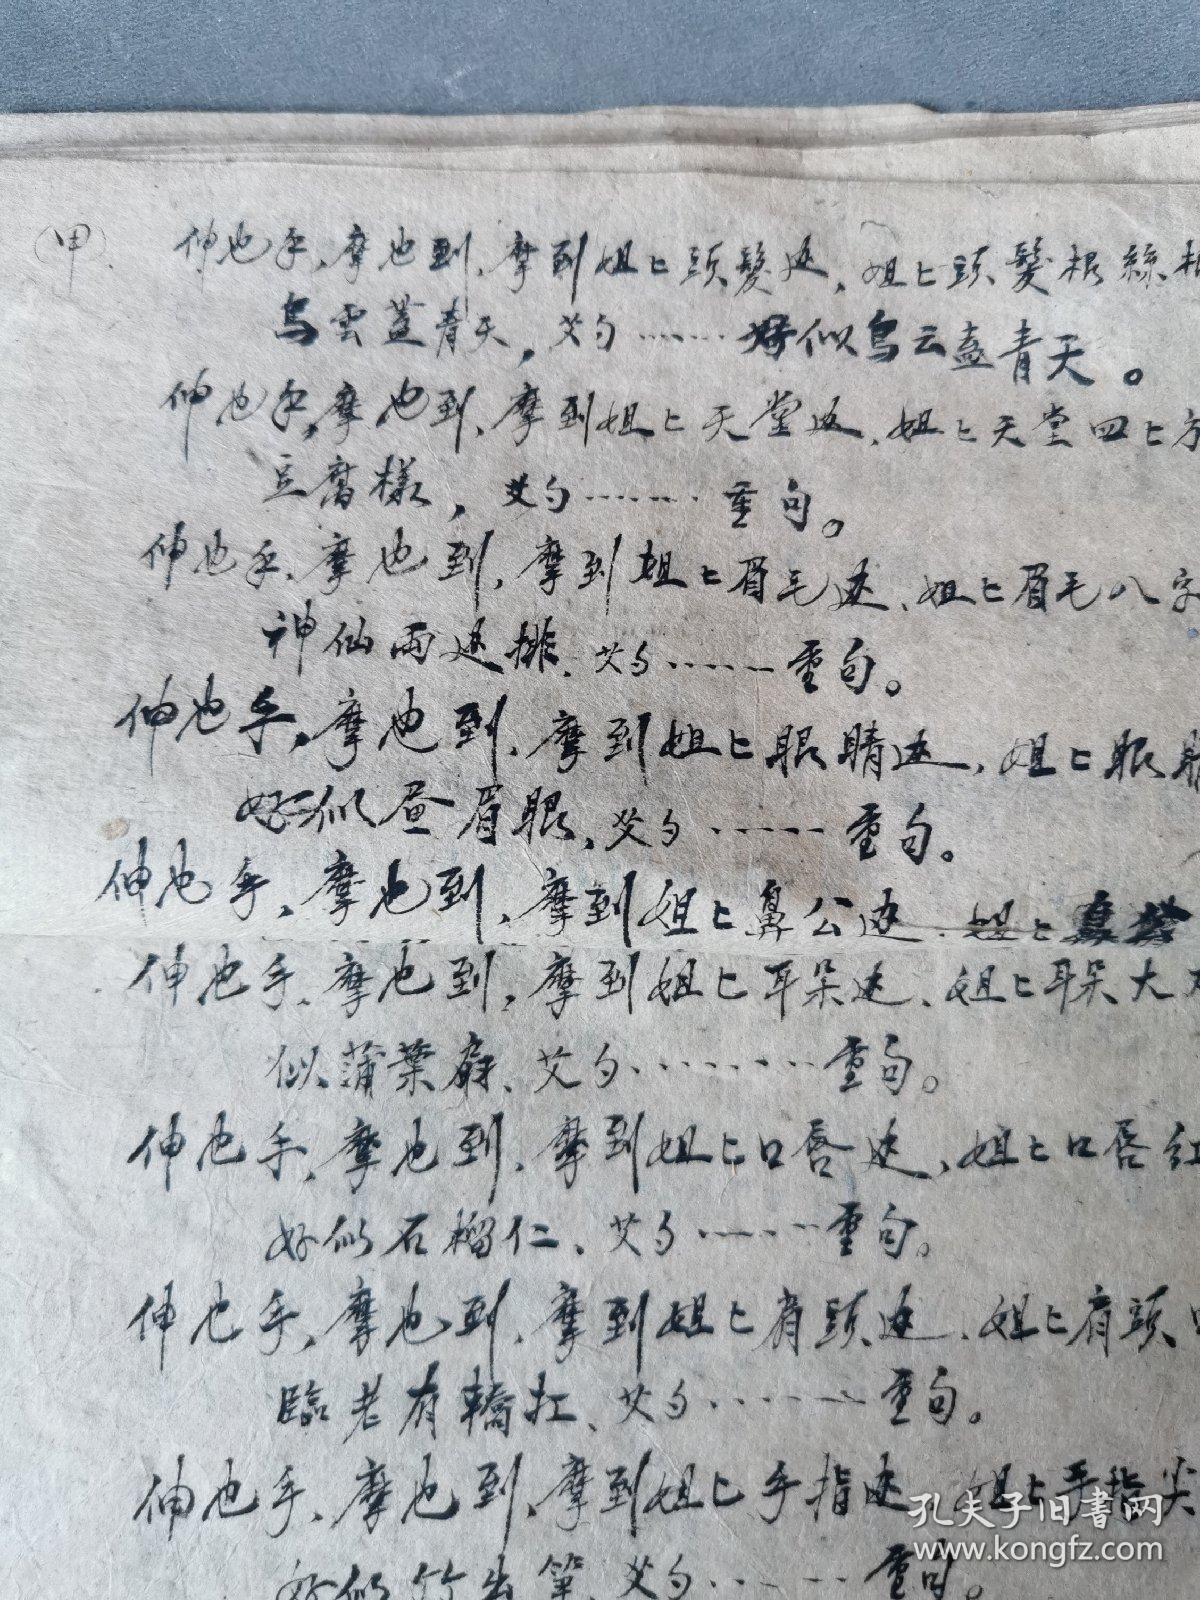 甲. 伸也手、摩也到、摩到姐〻頭髮边、姐〻頭髮根絲根
烏雲蓋青天，艾勺……好似烏云盖青天。
伸也手、摩也到、摩到姐〻天堂边、姐〻天堂四〻方
豆腐樣，艾勺……重句。
伸也手、摩也到、摩到姐〻眉毛边、姐〻眉毛八字
神仙兩边排、艾勺……重句。
伸也手、摩也到、摩到姐〻眼睛边、姐〻眼睛
好似眉眼、艾勺……重句。
伸也手、摩也到、摩到姐〻鼻公边、姐〻鼻
伸也手、摩也到、摩到姐〻耳朵边、姐〻耳朵大
似蒲葉扇、艾勺……重句。
伸也手、摩也到、摩到姐〻口唇边、姐〻口唇红
好似石榴仁、艾勺……重句。
伸也手、摩也到、摩到姐〻肩頭边、姐〻肩頭
臨老有轎扛、艾勺……重句。
伸也手、摩也到、摩到姐〻手指边、姐〻手指尖
好似竹出筍、艾勺……重句。
孔夫子旧书网
www.kongfz.com